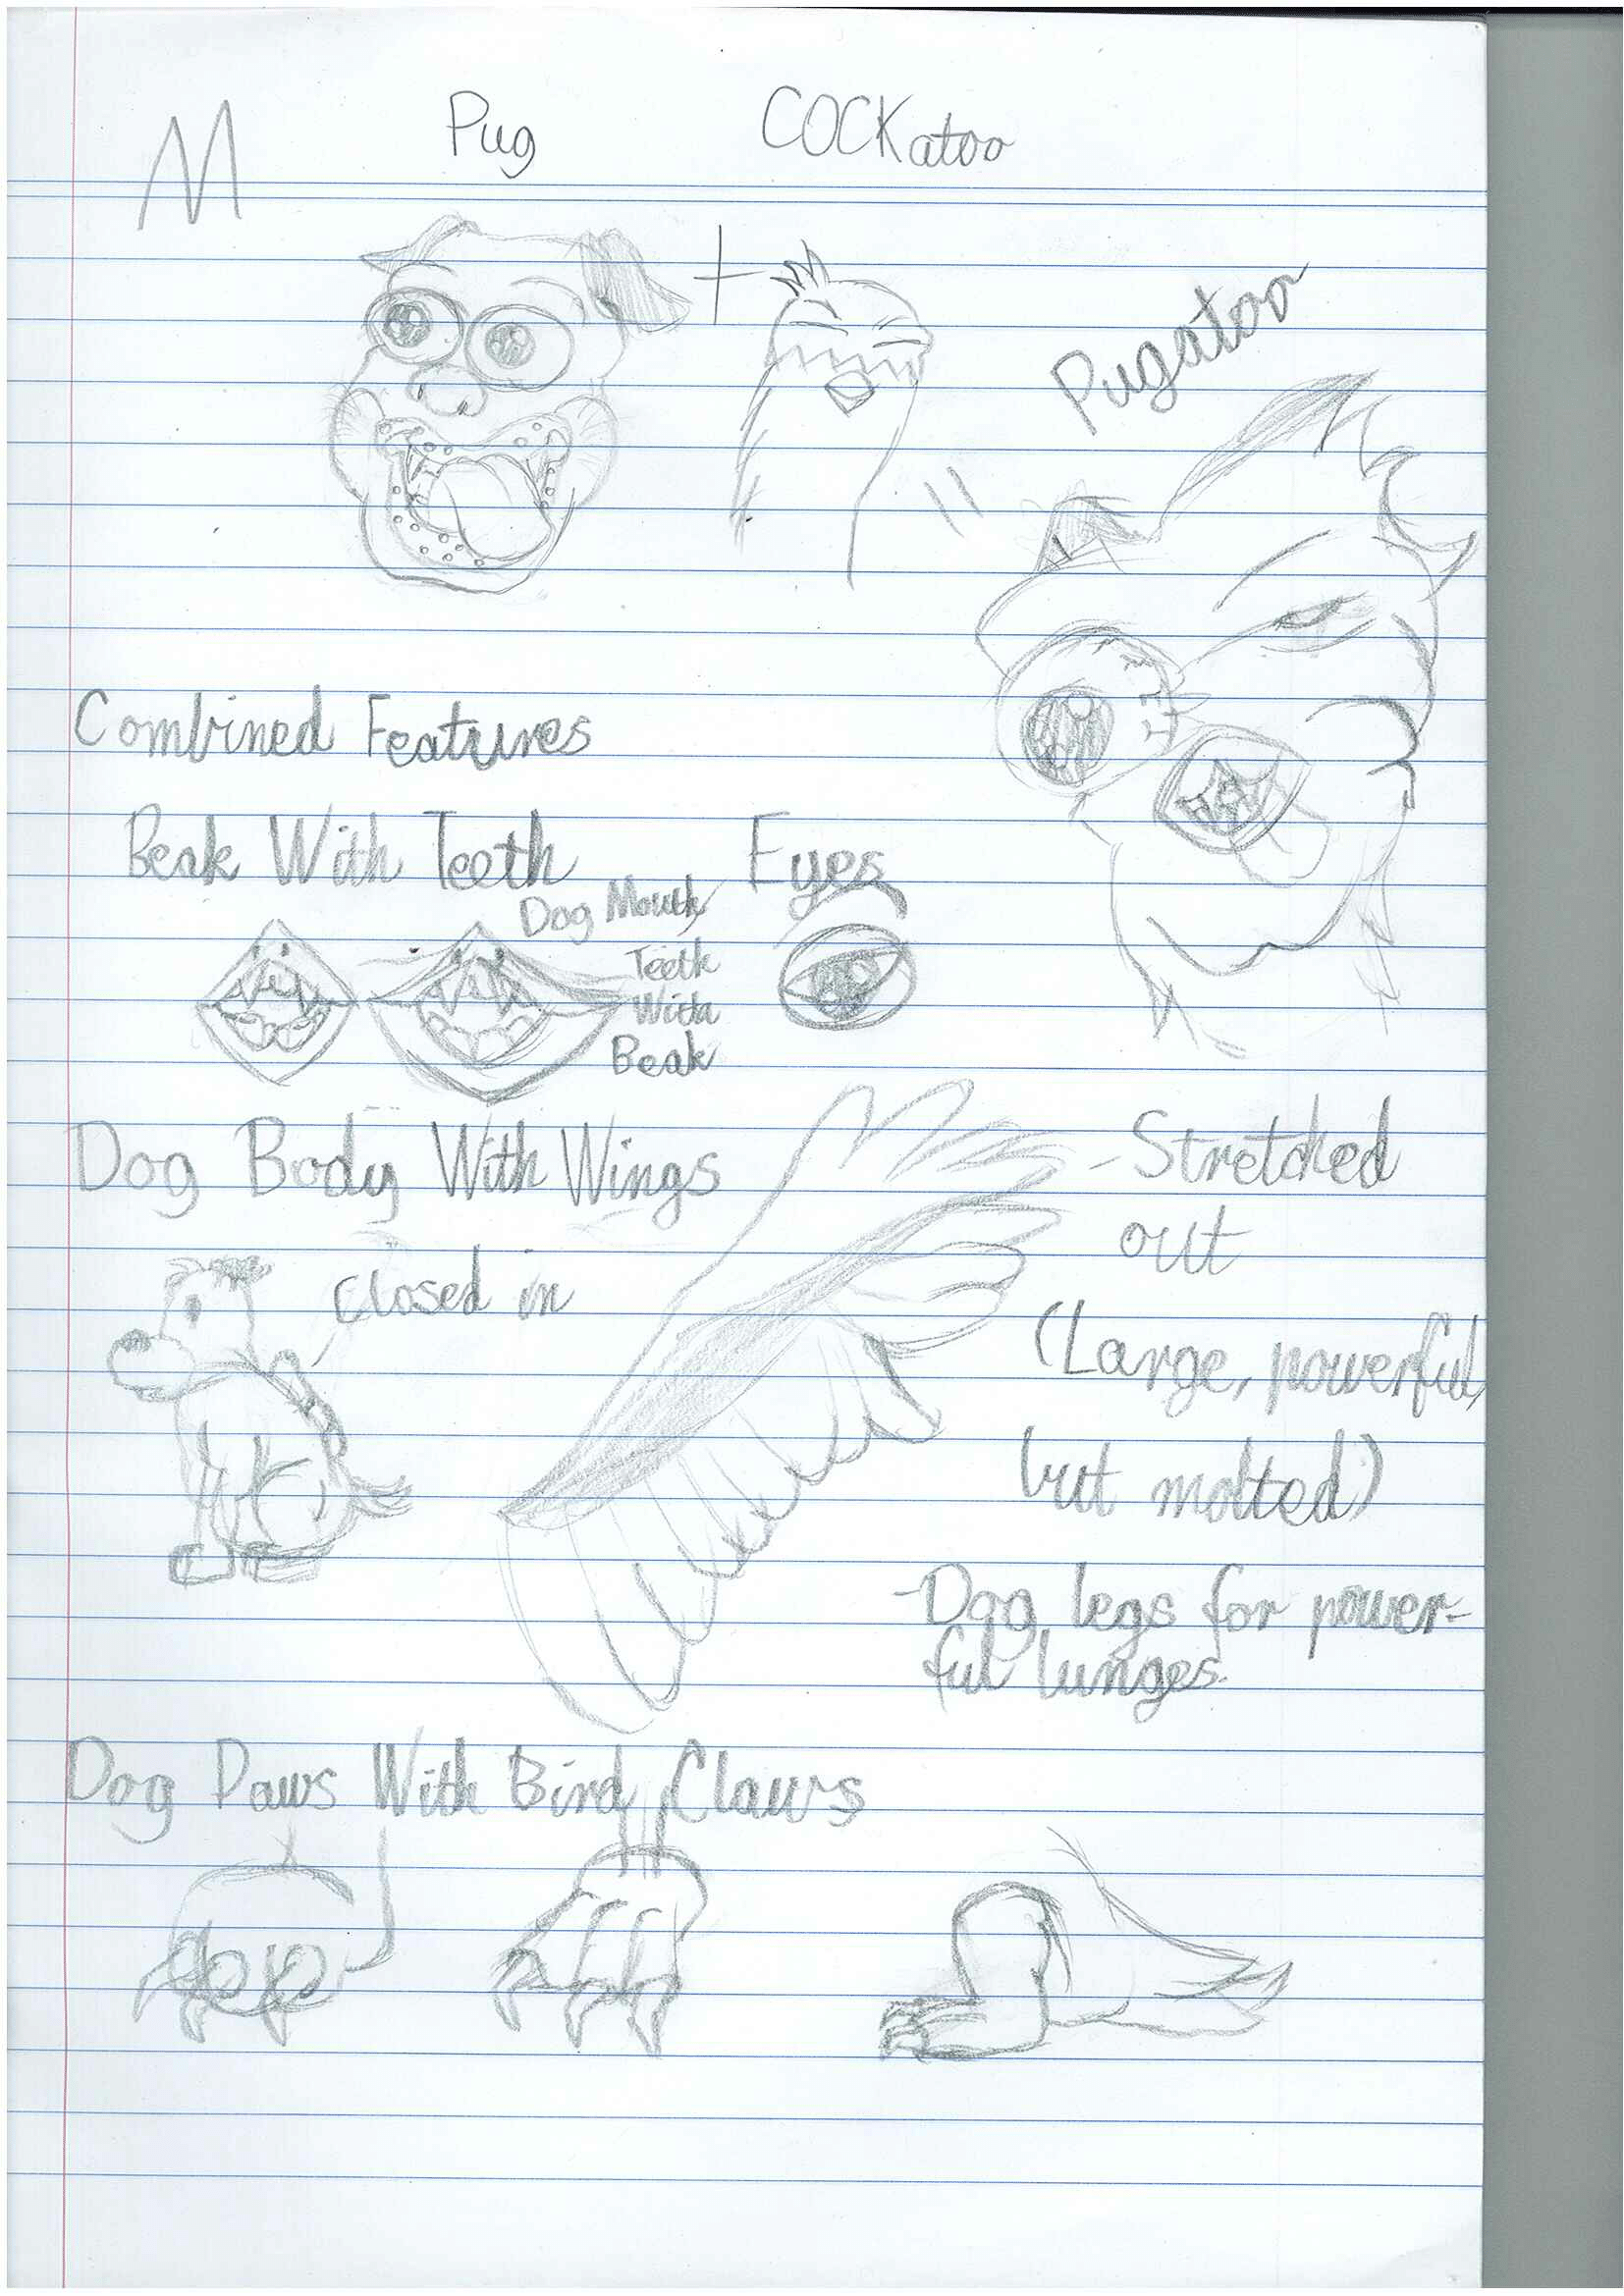 M Pug COCKatoo
+
Pugatoo
=
Combined Features
Beak With Teeth Eyes
Dog Mouth
Teeth
With
Beak
Dog Body With Wings
closed in
-Stretched
out
(Large, powerful,
but molted)
-Dog legs for power-
ful lunges.
Dog Paws With Bird Claws